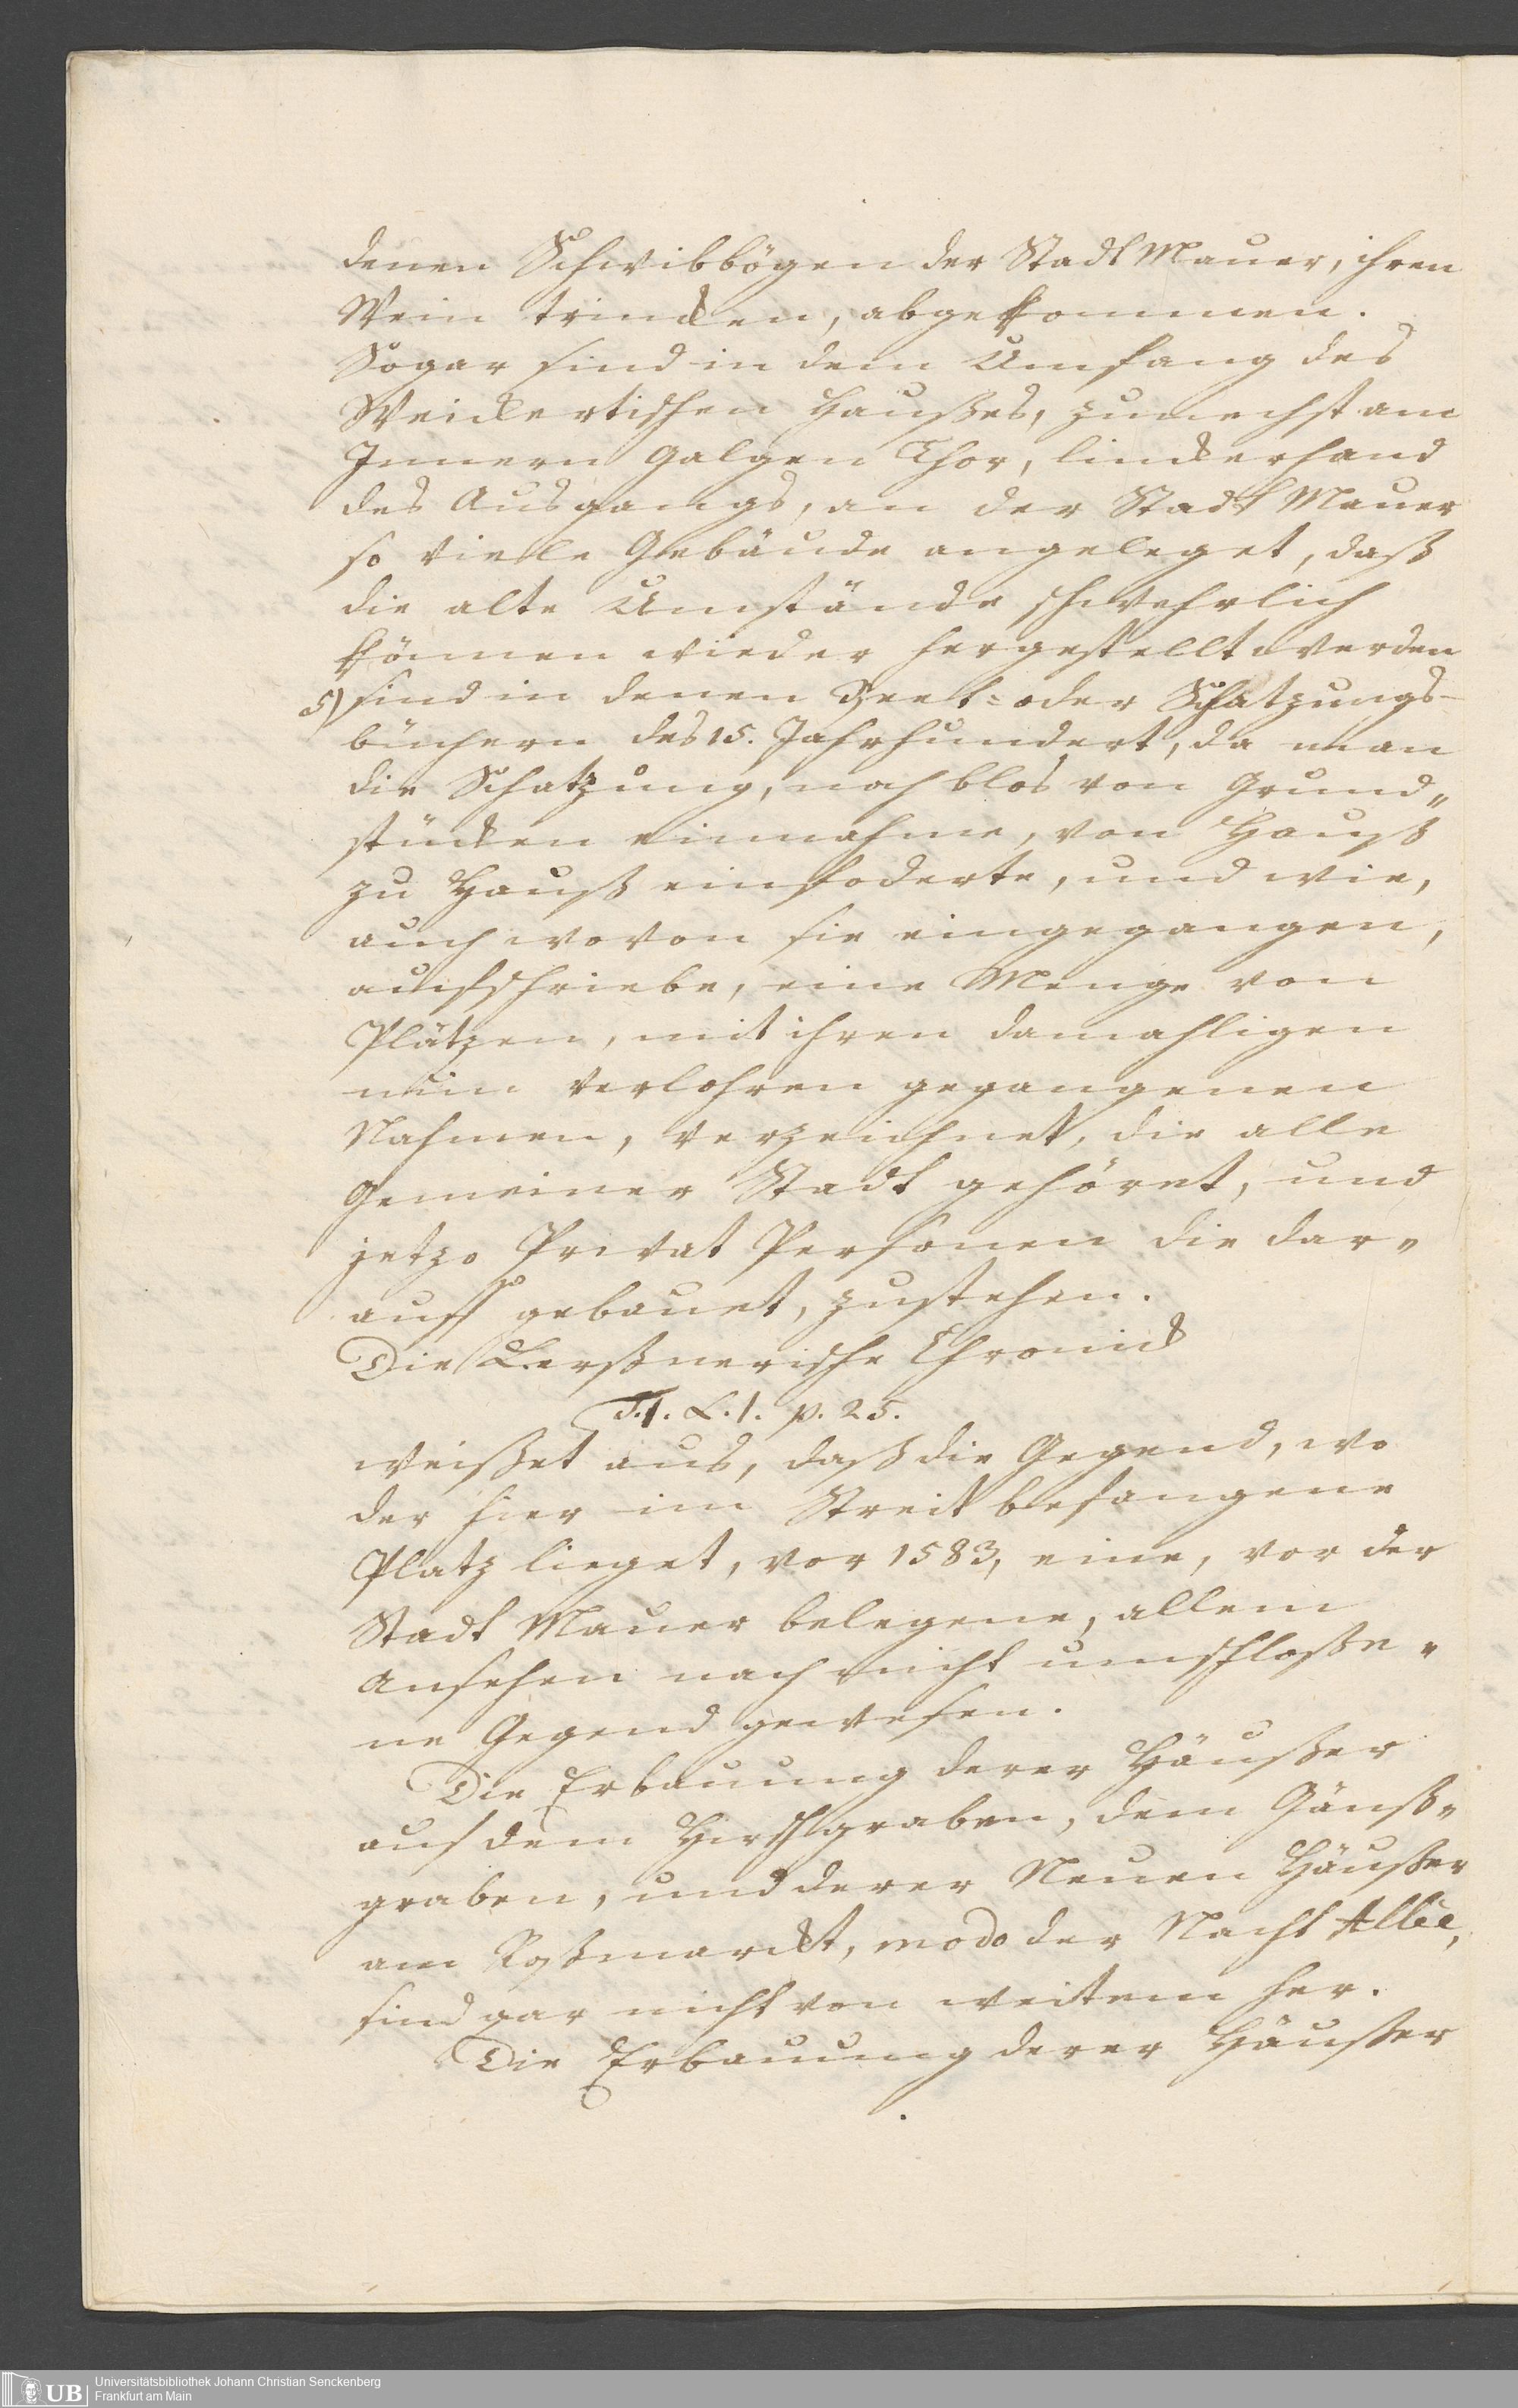 denen Schwibbögen der Stadt Mauer, ihren
Wein trincken, abgekommen.
Sogar sind in dem Umfang des
Weickertischen Haußes, zunechst am
Innern Galgen Thor, linckerhand
des Ausgangs, an der Stadt Mauer
so vielle Gebäude angeleget, daß
die alte Umstände schwehrlich
können wieder hergestellt werden
5) sind in denen Beet= oder Schatzungs-
büchern des 15. Jahrhundert, da man
die Schatzung, noch blos von Grund„
stücken einnahme, von Hauß
zu Hauß einfoderte, und wie,
auch wovon sie eingegangen,
aufschriebe, eine Menge von
Plätzen, mit ihren damahligen
nun verlohren gegangenen
Nahmen, verzeichnet, die alle
Gemeiner Stadt gehöret, und
jetzo Privat Personen die dar„
auff gebauet, zustehen.
Die Lerßnerische Chronick
T.1. L.1. p. 25.
weißet aus, daß die Gegend, wo
der hier im Streit befangene
Platz lieget, vor 1583, eine, vor der
Stadt Mauer belegene, allem
Ansehen nach nicht umschloße„
ne Gegend gewesen.
Die Erbauung derer Häußer
auf dem Hirschgraben, dem Gänß„
graben, und derer Neuen Häußer
am Roßmarckt, modo der Nacht Allée,
sind gar nicht von weitem her.
Die Erbauung derer Häußer
UB
Universitätsbibliothek Johann Christian Senckenberg
Frankfurt am Main